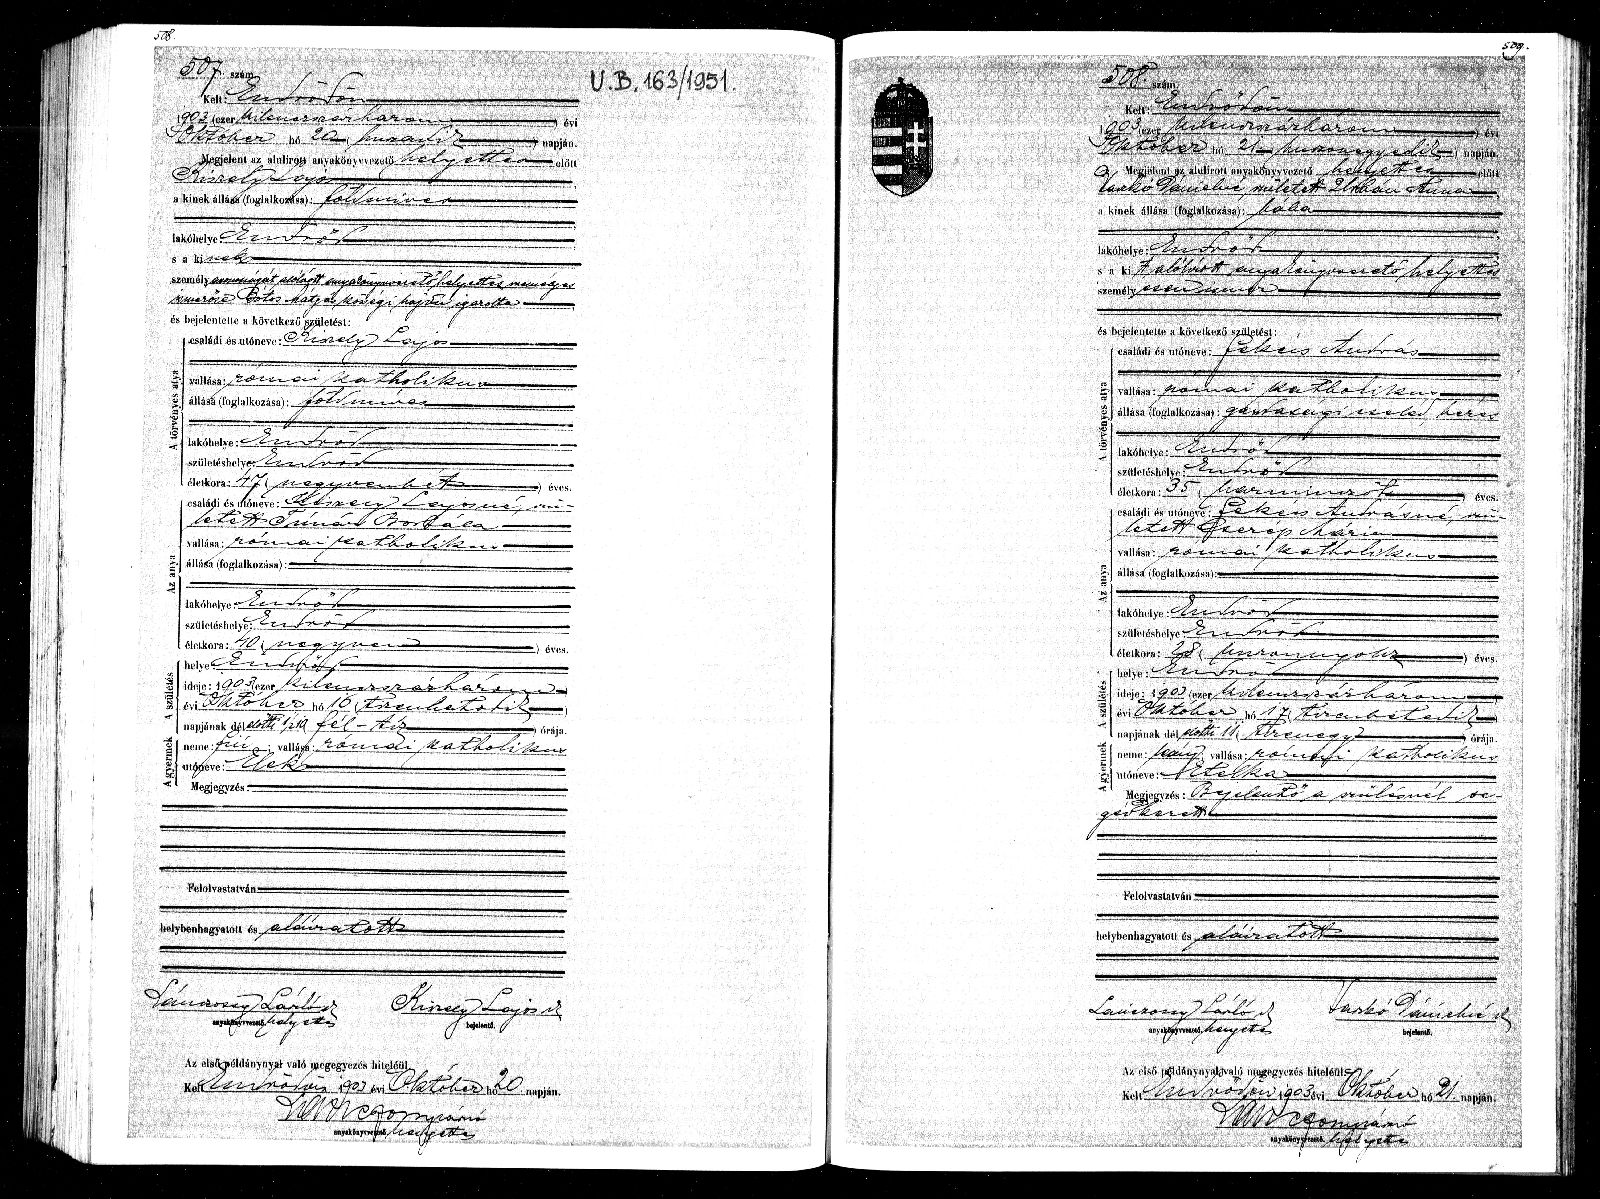 508.
507 szám
U.B. 163/1951.
Kelt: Endrődön
1903 (ezer kilenczszázhárom) évi
Október hó 20 (huszadik) napján.
Megjelent az alulirott anyakönyvvezető helyettes előtt
Kiszely Lajos
a kinek állása (foglalkozása): földmíves
lakóhelye: Endrőd
s a kinek
személyazonosságát alólírott anyakönyvvezető helyettes személyes
ismerőse Botos Mátyás községi hajdú igazolta
és bejelentette a következő születést:
A törvényes atya
családi és utóneve: Kiszely Lajos
vallása: római katholikus
állása (foglalkozása): földmíves
lakóhelye: Endrőd
születéshelye: Endrőd
életkora: 47 (negyvenhét) éves.
Az anya
családi és utóneve: Kiszely Lajosné, szü-
letett Tímár Borbála
vallása: római katholikus
állása (foglalkozása):
lakóhelye: Endrőd
születéshelye: Endrőd
életkora: 40 (negyven) éves.
A születés
helye: Endrőd
ideje: 1903 (ezer kilenczszázhárom)
évi Október hó 16 (tizenhatodik)
napjának dél előtti ½10 fél-tíz órája.
A gyermek
neme: fiú vallása: római katholikus
utóneve: Elek
Megjegyzés:
Felolvastatván
helybenhagyatott és aláíratott
Lánczossy László sk Kiszely Lajos sk
anyakönyvvezető. helyettes bejelentő.
Az első példánynyal való megegyezés hiteléül
Kelt Endrődön 1903 évi Október hó 20 napján.
anyakönyvvezető. helyettes
509.
508. szám
Kelt: Endrődön
1903 (ezer kilenczszázhárom) évi
Október hó 21 (huszonegyedik) napján.
Megjelent az alulirott anyakönyvvezető helyettes előtt
Varkó Dánielné, született Urbán Anna
a kinek állása (foglalkozása): bába
lakóhelye: Endrőd
s a kit alólírott anyakönyvvezető helyettes
személyesen ismer
és bejelentette a következő születést:
A törvényes atya
családi és utóneve: Fekécs András
vallása: római katholikus
állása (foglalkozása): gazdasági cseléd, béres
lakóhelye: Endrőd
születéshelye: Endrőd
életkora: 35 (harminczöt) éves.
Az anya
családi és utóneve: Fekécs Andrásné, szü-
letett Cserép Mária
vallása: római katholikus
állása (foglalkozása):
lakóhelye: Endrőd
születéshelye: Endrőd
életkora: 28 (huszonnyolcz) éves.
A születés
helye: Endrőd
ideje: 1903 (ezer kilenczszázhárom)
évi Október hó 17 (tizenhetedik)
napjának dél előtti 11 (tizenegy) órája.
A gyermek
neme: leány vallása: római katholikus
utóneve: Etelka
Megjegyzés: Bejelentő a szülésnél se-
gédkezett
Felolvastatván
helybenhagyatott és aláíratott
Lánczossy László sk Varkó Dánielné sk
anyakönyvvezető. helyettes bejelentő.
Az első példánynyal való megegyezés hiteléül
Kelt Endrődön 1903 évi Október hó 21. napján.
anyakönyvvezető. helyettes